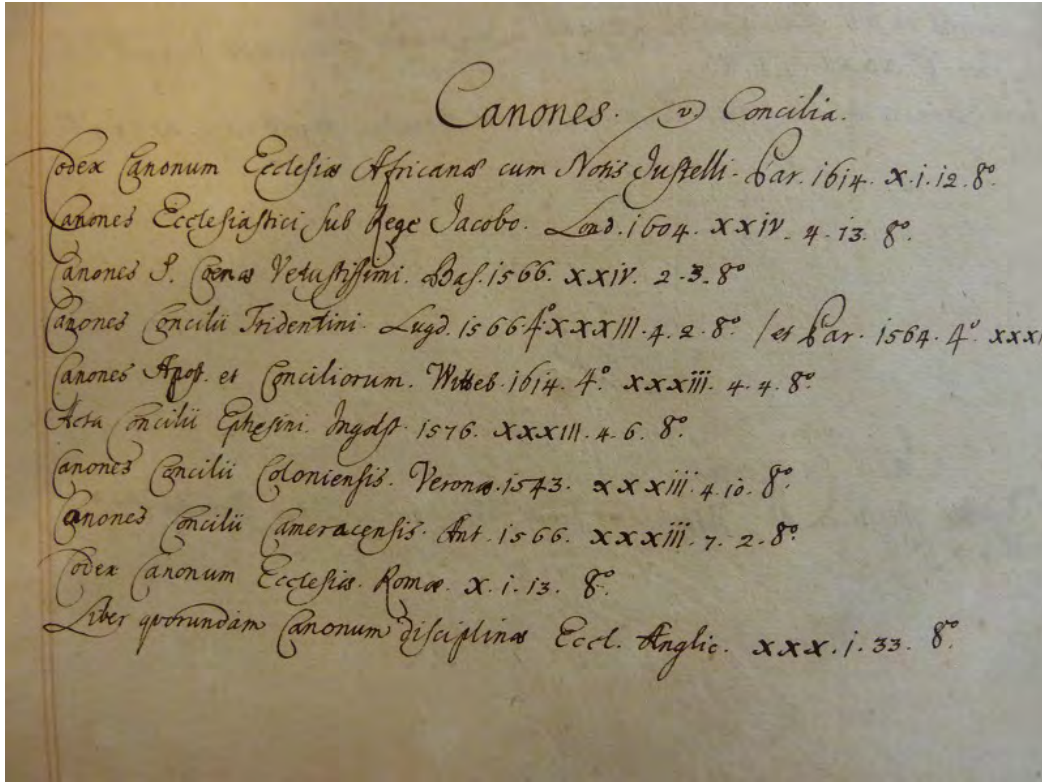 Canones. v. Concilia.
Codex Canonum Ecclesiæ Africanæ cum Notis Justelli. Par. 1614. X. 1. 12. 8º
Canones Ecclesiastici sub Rege Jacobo. Lond. 1604. XXIV. 4. 13. 8º.
Canones S. Coenæ Vetustissimi. Bas. 1566. XXIV. 2. 3. 8º
Canones Concilii Tridentini. Lugd. 1566. 4º. XXXIII. 4. 2. 8º / et Par. 1564. 4º XXXI
Canones Apost. et Conciliorum. Witteb. 1614. 4º. XXXIII. 4. 4. 8º
Acta Concilii Ephesini. Ingolst. 1576. XXXIII. 4. 6. 8º.
Canones Concilii Coloniensis. Veronæ. 1543. XXXIII. 4. 10. 8º.
Canones Concilii Cameracensis. Ant. 1566. XXXIII. 7. 2. 8º.
Codex Canonum Ecclesiæ. Romæ. X. 1. 13. 8º.
Liber quorundam Canonum disciplinæ Eccl. Anglic. XXX. 1. 33. 8º.